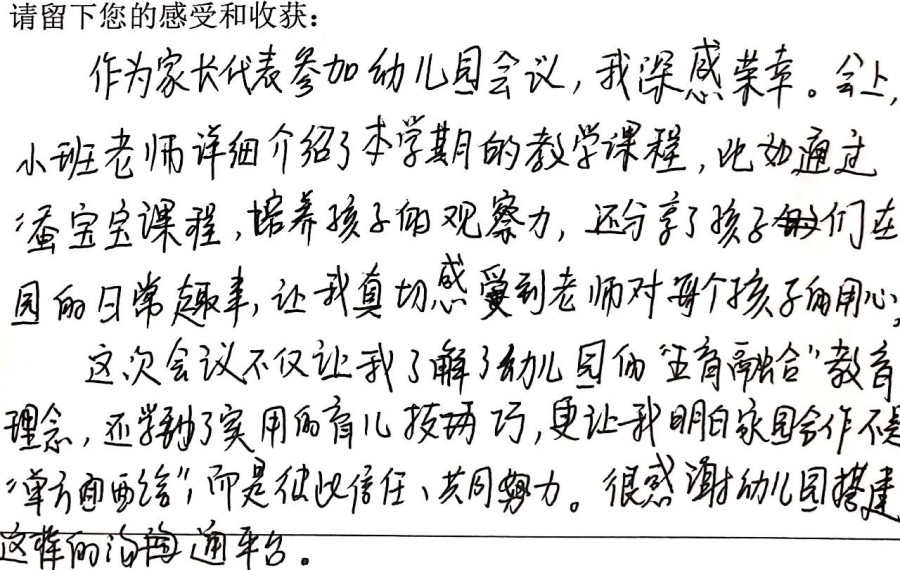 请留下您的感受和收获：
作为家长代表参加幼儿园会议，我深感荣幸。会上，
小班老师详细介绍了本学期的教学课程，比如通过
蚕宝宝课程，培养孩子的观察力，还分享了孩子们在
园的日常趣事，让我真切感受到老师对每个孩子的用心，
这次会议不仅让我了解了幼儿园的“五育融合”教育
理念，还学到了实用的育儿技巧，更让我明白家园合作不是
“单方面配给”，而是彼此信任、共同努力。很感谢幼儿园搭建
这样的沟通平台。